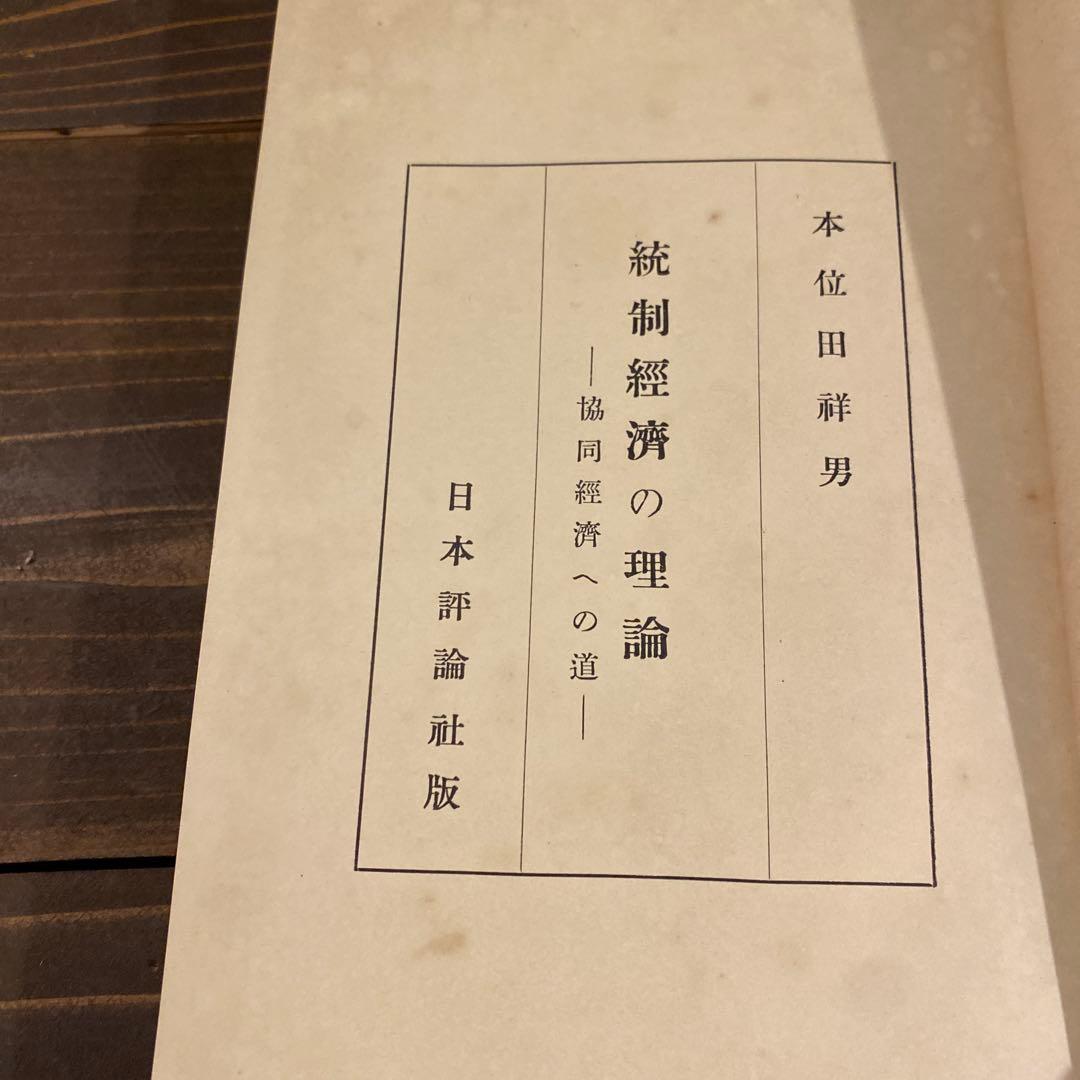 本位田祥男
統制經濟の理論
―協同經濟への道―
日本評論社版